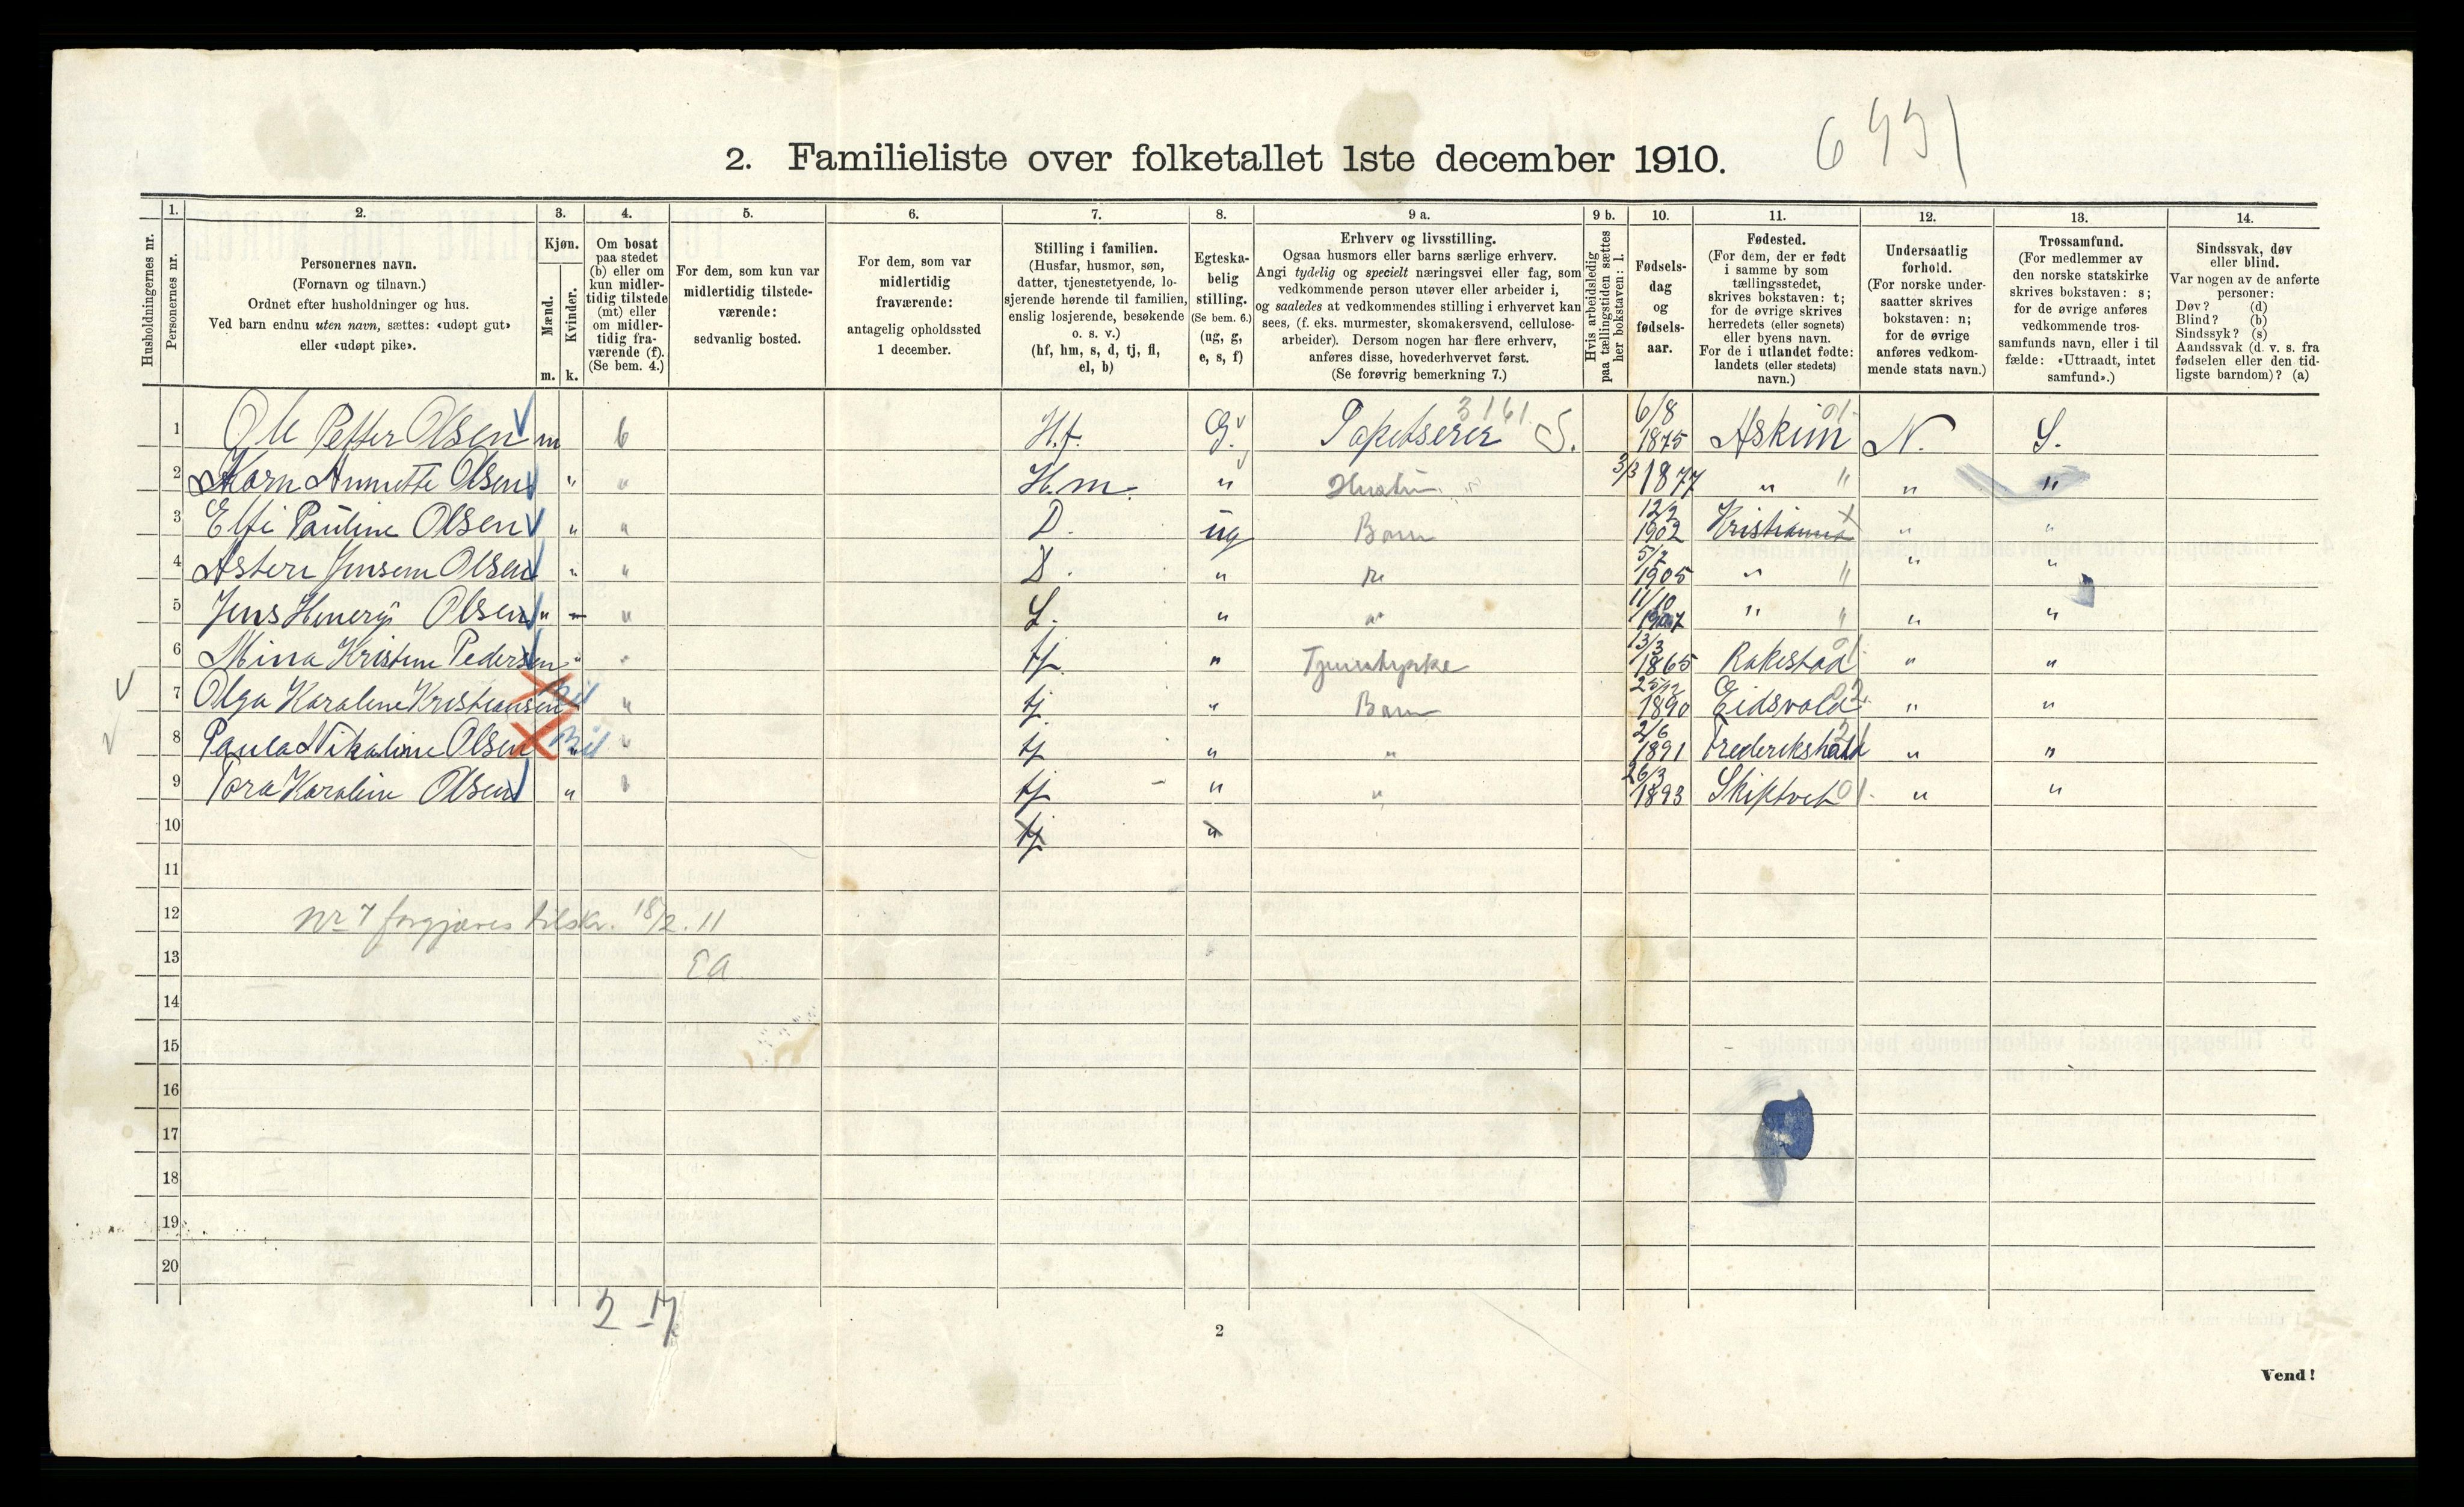 6451
2. Familieliste over folketallet 1ste december 1910.
Husholdningernes nr.
1. Personernes nr.
2. Personernes navn.
(Fornavn og tilnavn.)
Ordnet efter husholdninger og hus.
Ved barn endnu uten navn, sættes: «udøpt gut»
eller «udøpt pike».
3. Kjøn.
Mænd. m.
Kvinder. k.
4. Om bosat
paa stedet
(b) eller om
kun midler-
tidig tilstede
(mt) eller
om midler-
tidig fra-
værende (f).
(Se bem. 4.)
5. For dem, som kun var
midlertidig tilstede-
værende:
sedvanlig bosted.
6. For dem, som var
midlertidig
fraværende:
antagelig opholdssted
1 december.
7. Stilling i familien.
(Husfar, husmor, søn,
datter, tjenestetyende, lo-
sjerende hørende til familien,
enslig losjerende, besøkende
o. s. v.)
(hf, hm, s, d, tj, fl,
el, b)
8. Egteska-
belig
stilling.
(Se bem. 6.)
(ug, g,
e, s, f)
9 a. Erhverv og livsstilling.
Ogsaa husmors eller barns særlige erhverv.
Angi tydelig og specielt næringsvei eller fag, som
vedkommende person utøver eller arbeider i,
og saaledes at vedkommendes stilling i erhvervet kan
sees, (f. eks. murmester, skomakersvend, cellulose-
arbeider). Dersom nogen har flere erhverv,
anføres disse, hovederhvervet først.
(Se forøvrig bemerkning 7.)
9 b. Hvis arbeidsledig
paa tællingstiden sættes
her bokstaven: l.
10. Fødsels-
dag
og
fødsels-
aar.
11. Fødested.
(For dem, der er født
i samme by som
tællingsstedet,
skrives bokstaven: t;
for de øvrige skrives
herredets (eller sognets)
eller byens navn.
For de i utlandet fødte:
landets (eller stedets)
navn.)
12. Undersaatlig
forhold.
(For norske under-
saatter skrives
bokstaven: n;
for de øvrige
anføres vedkom-
mende stats navn.)
13. Trossamfund.
(For medlemmer av
den norske statskirke
skrives bokstaven: s;
for de øvrige anføres
vedkommende tros-
samfunds navn, eller i til
fælde: «Uttraadt, intet
samfund».)
14. Sindssvak, døv
eller blind.
Var nogen av de anførte
personer:
Døv? (d)
Blind? (b)
Sindssyk? (s)
Aandssvak (d. v. s. fra
fødselen eller den tid-
ligste barndom)? (a)
1 Ole Petter Olsen m b H.f. G. 3161 S. 6/8 1875 Askim 01. N. S.
2 Karn Annette Olsen " " H.m. " Hustru 3/3 1877 " " " "
3 Elfi Pauline Olsen " " D. ug Barn 12/2 1902 Kristiania " "
4 Asteri Jensem Olsen " " D. " 5/2 1905 " " " "
5 Jens Henery Olsen " " S. " " 11/10 1907 " " " "
6 Mina Kristine Pedersen " " tj " 13/3 1865 Rakestad 01. " "
7 Olga Karoline Kristiansen " tj. " Barn 25/12 1890 Eidsvold 02. " "
8 Paula Nikoline Olsen " " tj " " 2/6 1891 Frederikshald " "
9 Tora Karoline Olsen " " tj " " 26/3 1893 Skiptvet 01. " "
10 tj "
11
12 Nr 7 forgjæves tilskr. 18/2. 11
13 EA
14
15
16
17
18
19
20
2 - 7
2
Vend!